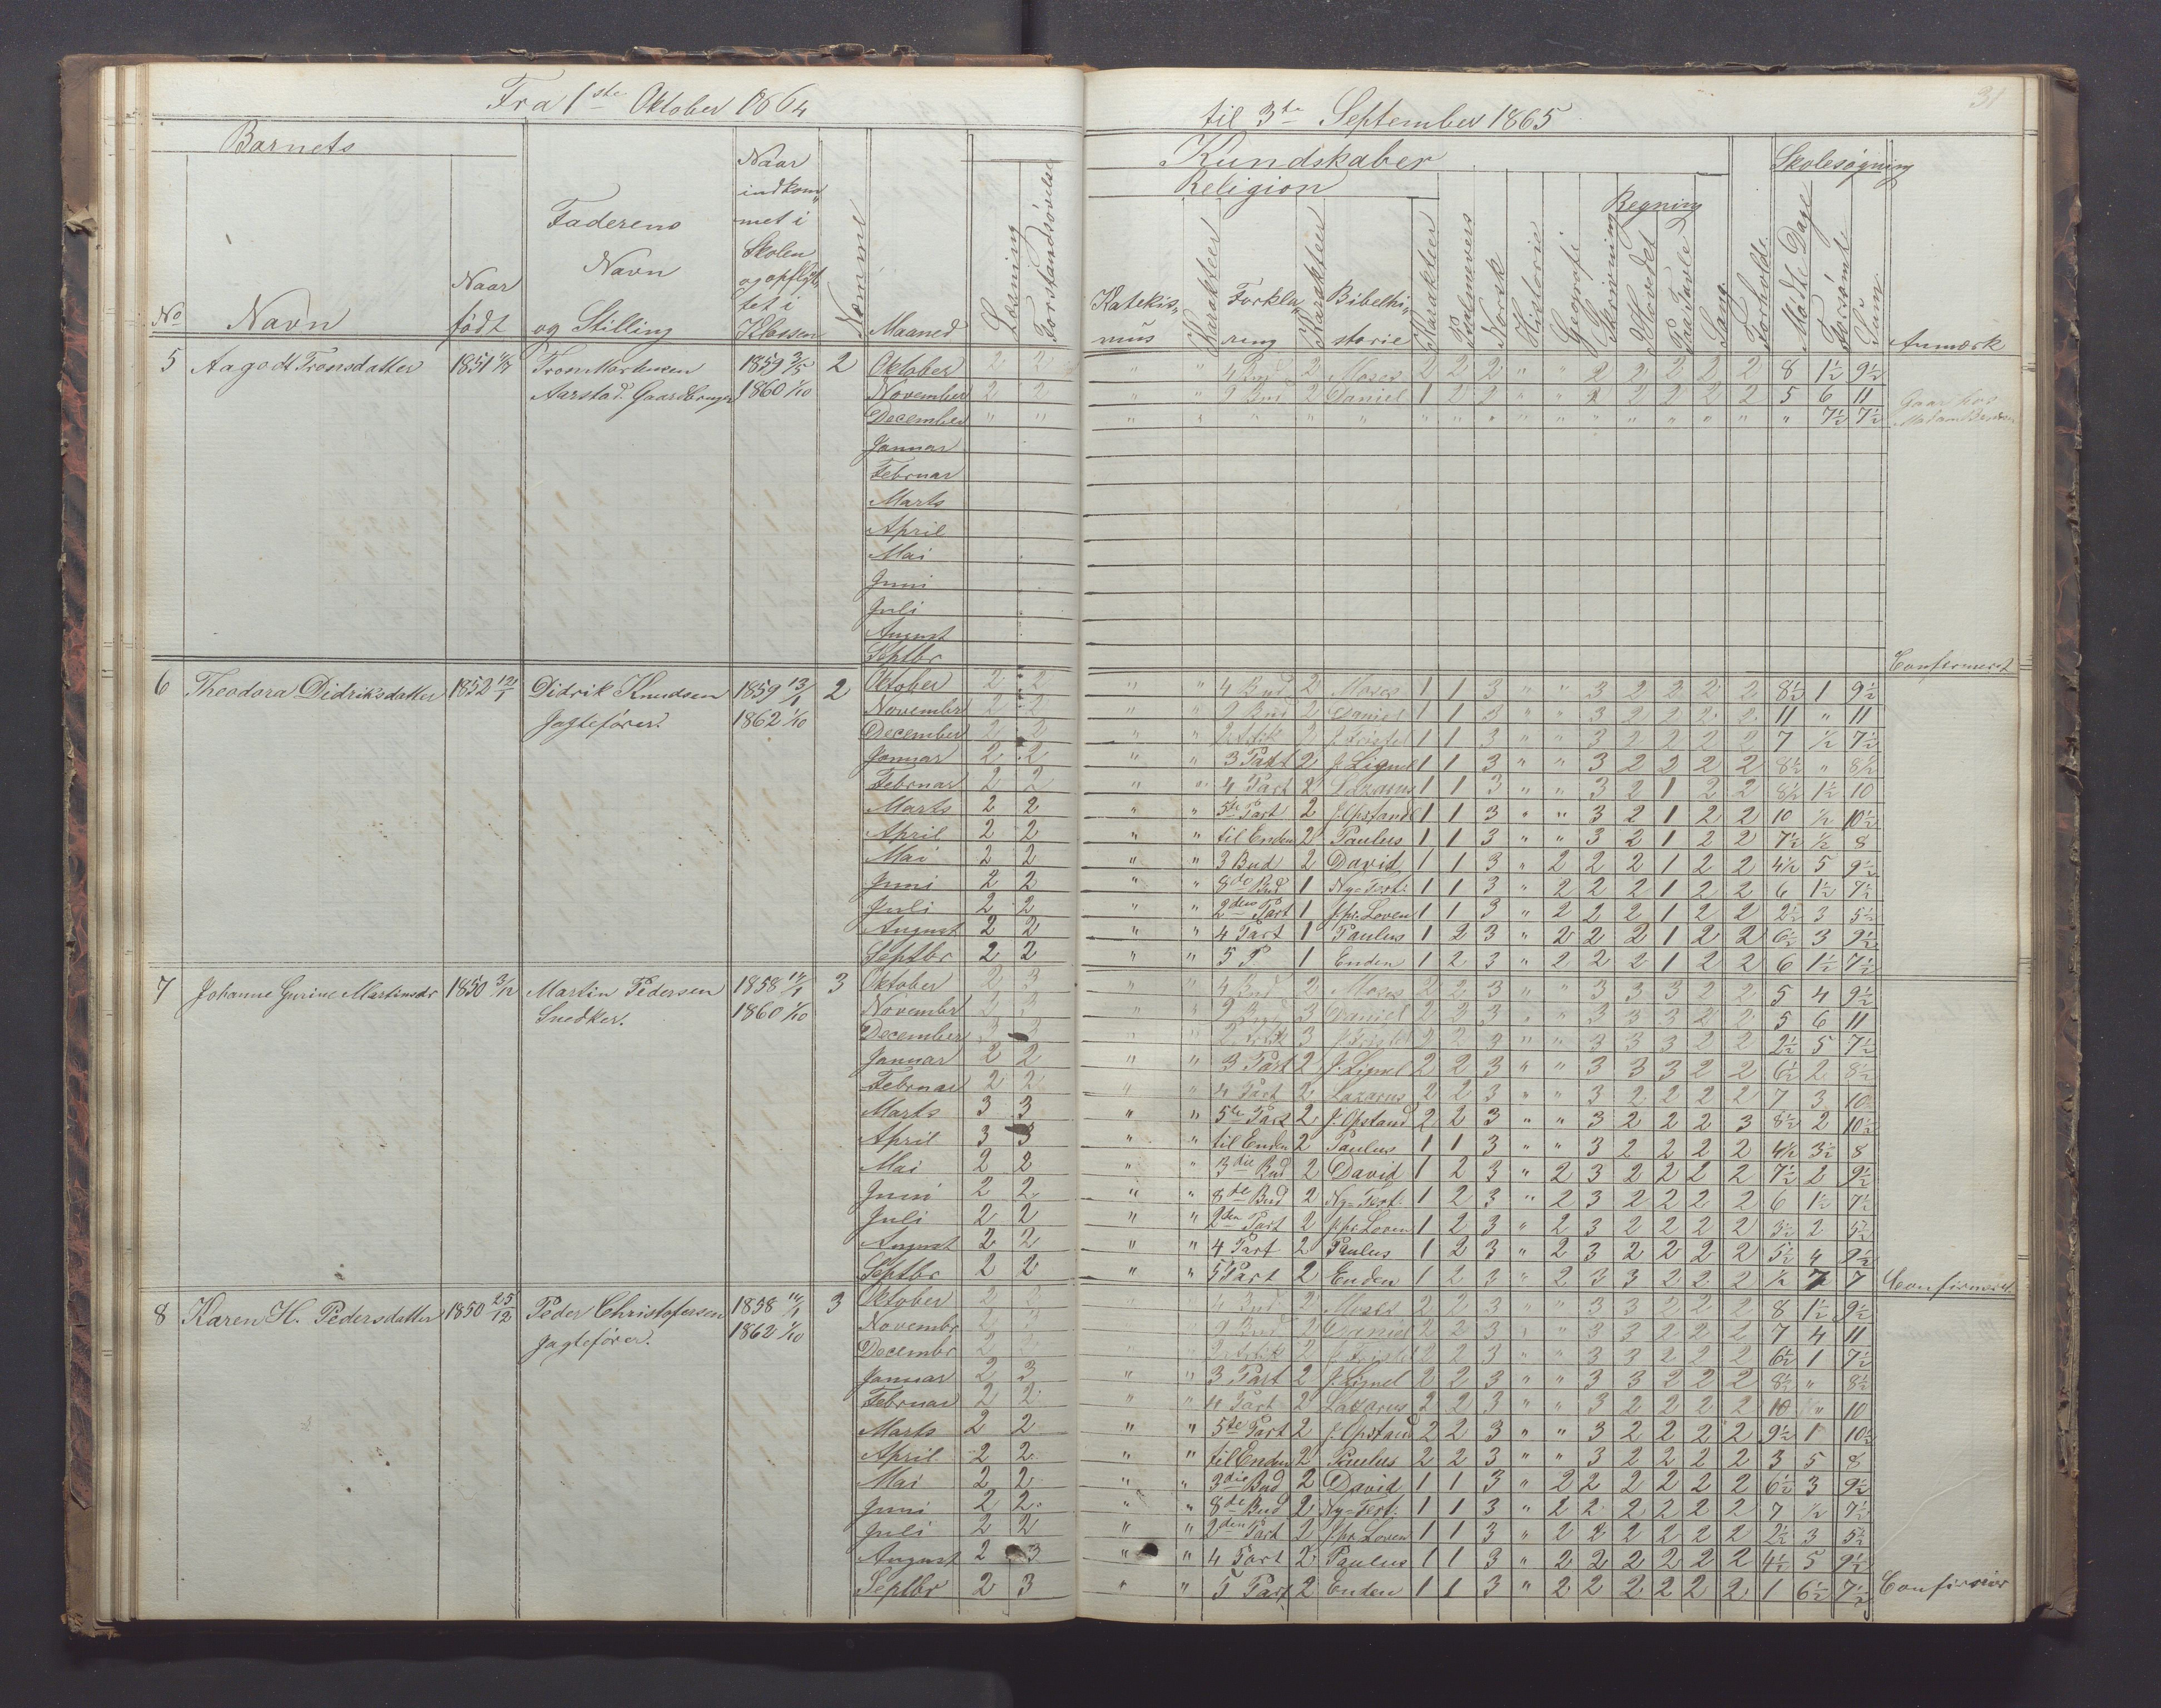 Fra 1ste Oktober 1864 til 3te September 1865
31
Barnets
Kundskaber
Skolesøgning
Religion
Regning
No
Navn
Naar født
Faderens Navn og Stilling
Naar indkommet i Skolen og opflyttet i Klassen
Maaned
Læsning
Forstandsøvelse
Katekismus
Karakteer
Forklaring
Karakteer
Bibelhistorie
Karakteer
Psalmevers
Norsk
Historie
Geografi
Skrivning
I Hovedet
Paa Tavle
Sang
Forhold
Mødte Dage
Forsømte
Sum
Anmærk
5 Aagodt Tronsdatter 1851 Tron Aarstad. Gaardbruger 1859 1860 1/10 2
Oktober 2 2 " " 4 Bud 2 Moses 2 2 2 " " 2 2 2 2 2 8 1½ 9½
November 2 2 " " 9 Bud 2 Daniel 1 2 2 " " 2 2 2 2 2 5 6 11
December " " " " " " " " " " " " " " " " " " 7½ 7½
Januar
Februar
Marts
April
Mai
Juni
Juli
August
Septbr Confirmert
6 Theodora Didriksdatter 1852 12/1 Didrik Knudsen Jagtefører. 1859 13/1 1862 1/10 2
Oktober 2 2 " " 4 Bud 2 Moses 1 1 3 " " 3 2 2 2 2 8½ 1 9½
November 2 2 " " 9 Bud 2 Daniel 1 1 3 " " 3 2 2 2 2 11 " 11
December 2 2 " " 2 Artik 2 J. Fristel 1 1 3 " " 3 2 2 2 2 7 ½ 7½
Januar 2 2 " " 3 Part 2 J. Lignel 1 1 3 " " 3 2 2 2 2 8½ " 8½
Februar 2 2 " " 4 Part 2 Lazarus 1 1 3 " " 3 2 1 2 2 8½ 1½ 10
Marts 2 2 " " 5te Part 2 J. Opstand 1 1 3 " " 3 2 1 2 2 10 ½ 10½
April 2 2 " " til Enden 2 Paulus 1 1 3 " " 3 2 1 2 2 7½ ½ 8
Mai 2 2 " " 3 Bud 2 David 1 1 3 " 2 2 2 1 2 2 4½ 5 9½
Juni 2 2 " " 8de Bud 1 Ny=Test: 1 1 3 " 2 2 2 1 2 2 6 1½ 7½
Juli 2 2 " " 2den Part 1 J. pr. Loven 1 1 3 " 2 2 2 1 2 2 2½ 3 5½
August 2 2 " " 4 Part 1 Paulus 1 2 3 " 2 2 2 1 2 2 6½ 3 9½
Septbr 2 2 " " 5 P 1 Enden 1 2 3 " 2 2 2 1 2 2 6 1½ 7½
7 Johanne Gurine Martinsdr 1850 3/12 Martin Pedersen Snedker. 1858 1860 1/10 3
Oktober 2 3 " " 4 Bud 2 Moses 2 2 3 " " 3 3 3 2 2 5 4 9½
Novembr 3 3 " " 9 Bud 3 Daniel 2 3 3 " " 3 3 3 2 2 5 6 11
December 3 3 " " 2 Artik 3 J. Fristel 2 2 3 " " 3 3 3 2 2 2½ 5 7½
Januar 2 2 " " 3 Part 2 J. Lignel 2 2 3 " " 3 3 3 2 2 6½ 2 8½
Februar 2 2 " " 4 Part 2 Lazarus 2 2 3 " " 3 2 2 2 2 7 3 10
Marts 3 3 " " 5te Part 2 J. Opstand 2 2 3 " " 3 2 2 2 3 8½ 2 10½
April 3 3 " " til Enden 2 Paulus 1 1 3 " " 3 2 2 2 2 4½ 3½ 8
Mai 2 2 " " 3die Bud 2 David 1 2 3 " 2 3 2 2 2 2 7½ 2 9½
Juni 2 2 " " 8de Bud 2 Ny=Test: 1 2 3 " 2 3 2 2 2 2 6 1½ 7½
Juli 2 2 " " 2den Part 2 J. pr. Loven 1 2 3 " 2 3 2 2 2 2 3½ 2 5½
August 2 2 " " 4 Part 2 Paulus 1 2 3 " 2 3 2 2 2 2 5½ 4 9½
Septbr 2 2 " " 5 Part 2 Enden 1 2 3 " 2 3 3 2 2 2 ½ 7 7 Confirmert
8 Karen H. Pedersdatter 1850 25/12 Peder Christofersen Jagtefører. 1858 1862 1/10 3
Oktober 2 2 4 Bud 2 Moses 2 2 3 " " 3 3 2 2 2 8 1½ 9½
Novembr 2 3 9 Bud 2 Daniel 2 2 3 " " 3 3 2 2 2 7 4 11
Decembr 2 2 2 Artik 2 J. Fristel 2 2 3 " " 3 3 2 2 2 6½ 1 7½
Januar 2 3 " " 3 Part 2 J. Lignel 2 2 3 " " 3 3 2 2 2 8½ " 8½
Februar 2 2 " " 4 Part 2 Lazarus 2 2 3 " " 3 2 2 2 2 10 " 10
Marts 2 2 " " 5te Part 2 J. Opstand 2 2 3 " " 3 2 2 2 2 9½ 1 10½
April 2 2 " " til Enden 2 Paulus 2 2 3 " " 3 2 2 2 2 3 5 8
Mai 2 2 " " 3die Bud 2 David 1 1 3 " 2 2 2 2 2 2 6½ 3 9½
Juni 2 2 " " 8de Bud 2 Ny=Test: 1 1 3 " 2 2 2 2 2 2 7 ½ 7½
Juli 2 2 " " 2den Part 2 J. pr. Loven 1 1 3 " 2 2 2 2 2 2 2½ 3 5½
August 2 3 " " 4 Part 2 Paulus 1 1 3 " 2 2 2 2 2 2 4½ 5 9½
Septbr 2 3 " " 5 Part 2 Enden 1 1 3 " 2 2 2 2 2 2 1 6½ 7½